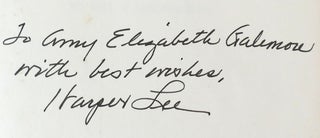 To Amy Elizabeth Galemore
with best wishes,
Harper Lee